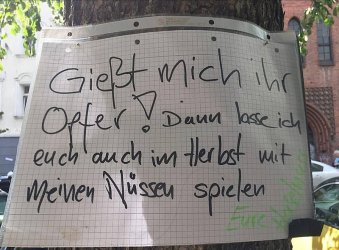 Gießt mich ihr
Opfer! Dann lasse ich
euch auch im Herbst mit
meinen Nüssen spielen
Eure